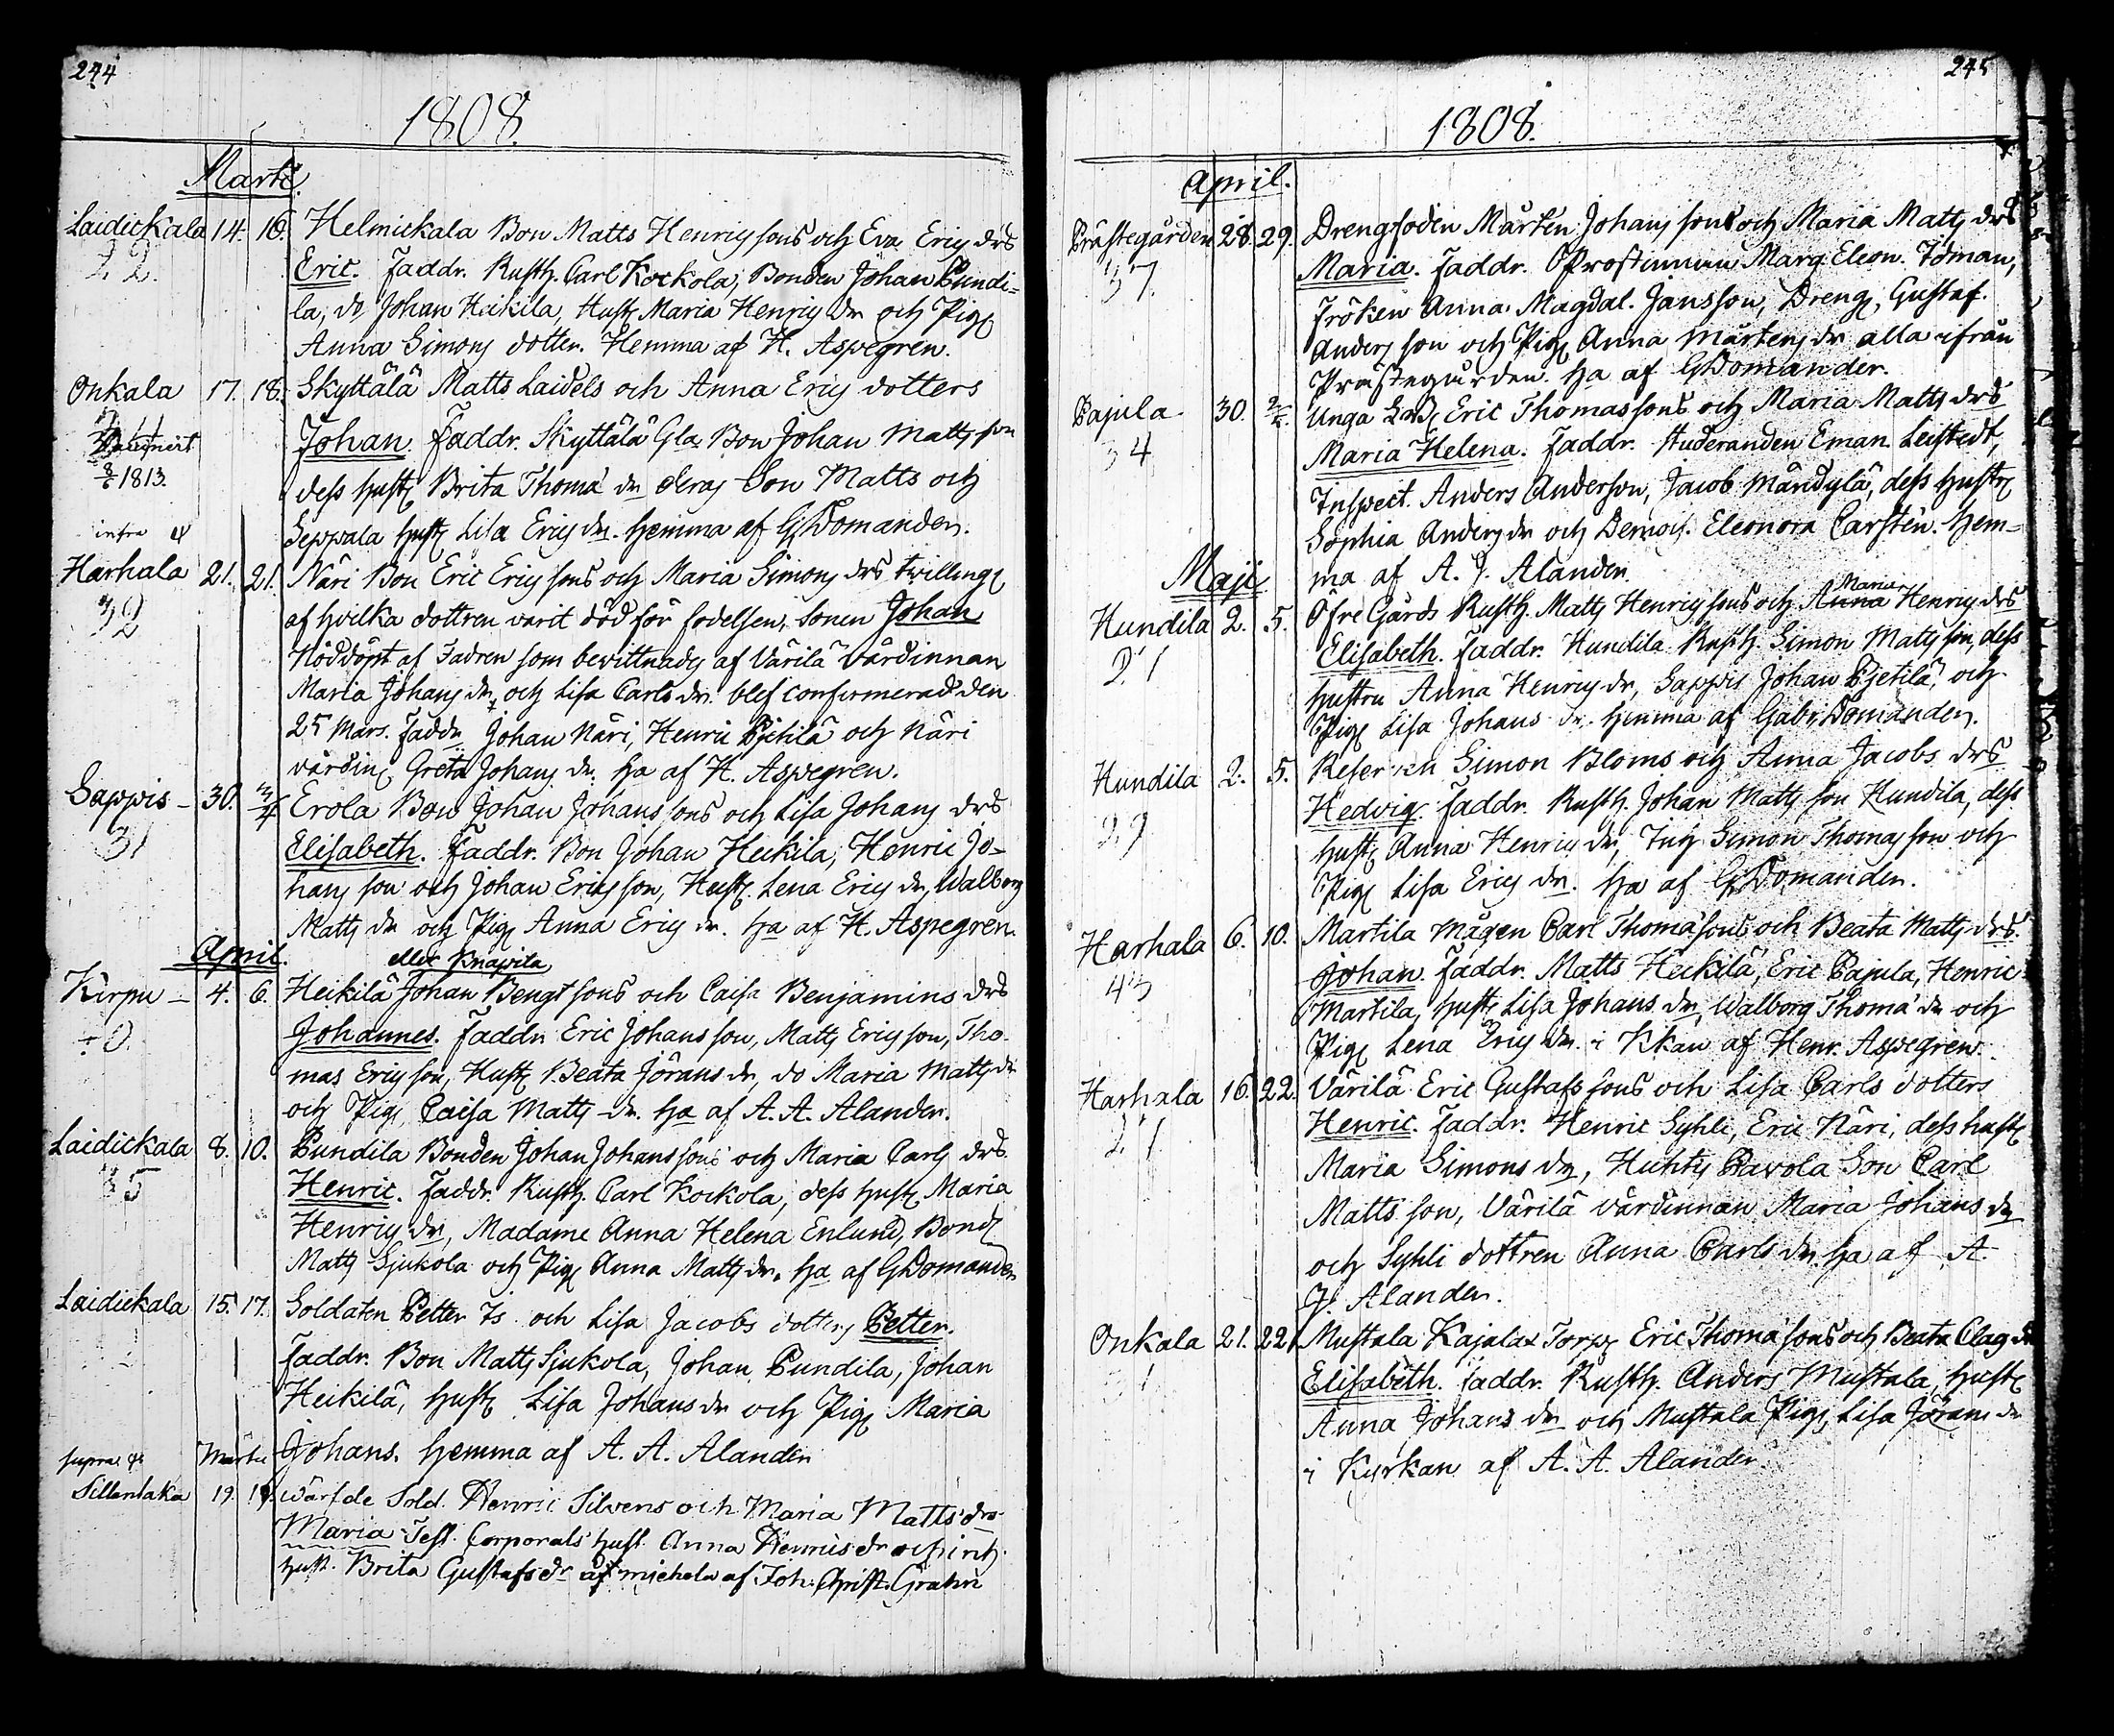 244
1808.
Martii
Laidickala 14. 16. Helmickala Bon Matts Henricssons och Eva Erics drs
22. Eric. Faddr. Rusth. Carl Kockola, Bonden Johan Pundi=
la, do Johan Heikila, Hust Maria Henrics dr och Pig
Anna Simons dotter. Hemma af H. Aspegren.
Onkala 17. 18. Skyttälä Matts Laidels och Anna Erics dotters
Johan. Faddr. Skyttälä Gla Bon Johan Matts son
8/6 1813. dess hust Brita Thoma dr deras Son Matts och
infra Seppala hust Lisa Erics dr. Hemma af G Domander.
Harhala 21. 21. Näri Bon Eric Ericssons och Maria Simons drs twilling
32 af hvilka dottren varit död för födelsen, sonen Johan
Nöddöpt af Fadren som bevittnades af Värilä Värdinnan
Maria Johans dr, och Lisa Carls dr. blef confirmerad den
25 Mars. Faddr Johan Näri, Henric Pjetilä och Näri
värdin Greta Johans dr. ha af H. Aspegren.
Sappis – 30. 3/4 Erola Bon Johan Johanssons och Lisa Johans drs
31 Elisabeth. Faddr. Bon Johan Heikila, Henric Jo=
hans son och Johan Ericsson, Hust Lena Erics dr, Walborg
Matts dr och Pig Anna Erics dr. ha af H. Aspegren.
April.
eller Knapila
Kirpu – 4. 6. Heikilä Johan Bengtsons och Caisa Benjamins drs
Johannes. Faddr Eric Johansson, Matts Ericsson, Tho-
mas Ericsson, Hust Beata Jörans dr, do Maria Matts dr
och Pig Caisa Matts dr. ha af A. A. Alander.
Laidickala 8. 10. Pundila Bonden Johan Johanssons och Maria Carls drs
35 Henric. Faddr. Rusth. Carl Kockola, dess hust Maria
Henrics dr, Madame Anna Helena Enlund, Bond
Matts Sjukola och Pig Anna Matts dr. ha af G Domander
Laidickala 15. 17. Soldaten Petter Is och Lisa Jacobs dotters Petter.
Faddr. Bon Matts Sjukola, Johan Pundila, Johan
Heikilä, hust Lisa Johans dr och Pig Maria
supra Martii Johans. Hemma af A. A. Alander
Sillantaka 19. 19. wärfde Sold. Henric Silvens och Maria Matts drs
Maria Test. Corporals hust Anna Henrics dr och inh.
hust. Brita Gustafs dr af Joh. Christ. Grahn
245
1808.
April.
Prästegården 28. 29. Drengfoden Mårten Johans sons och Maria Matts drs
37. Maria. Faddr. OProstinnan Marg. Eleon. Idman,
Fröken Anna Magdal. Jansson, Dreng Gustaf
Anders son och Pig Anna Mårtens dr alla ifrån
Prästegården. ha af G Domander.
Pajula 30. 2/5. Unga Eric Thomassons och Maria Matts drs
34 Maria Helena. Faddr. Studeranden Eman Leistedt,
Inspect. Anders Anderson, Jacob Mändylä, dess hustr
Sophia Anders dr och Demois. Eleonora Carsten. Hem=
ma af A. J. Alander.
Maji
Maria
Hundila 2. 5. Öfre Gårds Rusth. Matts Henricssons och Anna Henrics drs
21 Elisabeth. Faddr. Hundila Rusth. Simon Matts son, dess
hustru Anna Henrics dr, Sappis Johan Pjetilä, och
Pig Lisa Johans dr. hemma af Gabr. Domander.
Hundila 2. 5. Reserven Simon Bloms och Anna Jacobs drs
29 Hedvig. Faddr. Rusth. Johan Matts son Hundila, dess
hust Anna Henrics dr, Inh Simon Thomas son och
Pig Lisa Erics dr. ha af G Domander.
Harhala 6. 10. Martila Mågen Carl Thomasons och Beata Matts drs.
43 Johan. Faddr. Matts Heikilä, Eric Pajula, Henric
Martila, hust Lisa Johans dr, Walborg Thoma dr och
Pig Lena Erics dr. i Kkan af Henr. Aspegren.
Harhala 16. 22. Värilä Eric Gustafs sons och Lisa Carls dotters
21 Henric. Faddr. Henric Syhli, Eric Näri, dess hust
Maria Simons dr, Huhtis Pavola Son Carl
Matts son, Värilä värdinnan Maria Johans dr
och Syhli dottren Anna Carls dr. ha af A.
J. Alander.
Onkala 21. 22. Mustala Kajalax Torp Eric Thomasons och Beata Clas dr
Elisabeth. Faddr. Rusth. Anders Mustala, hust
Anna Johans dr och Mustala Pig Lisa Jörans dr
i Kyrkan af A. A. Alander.